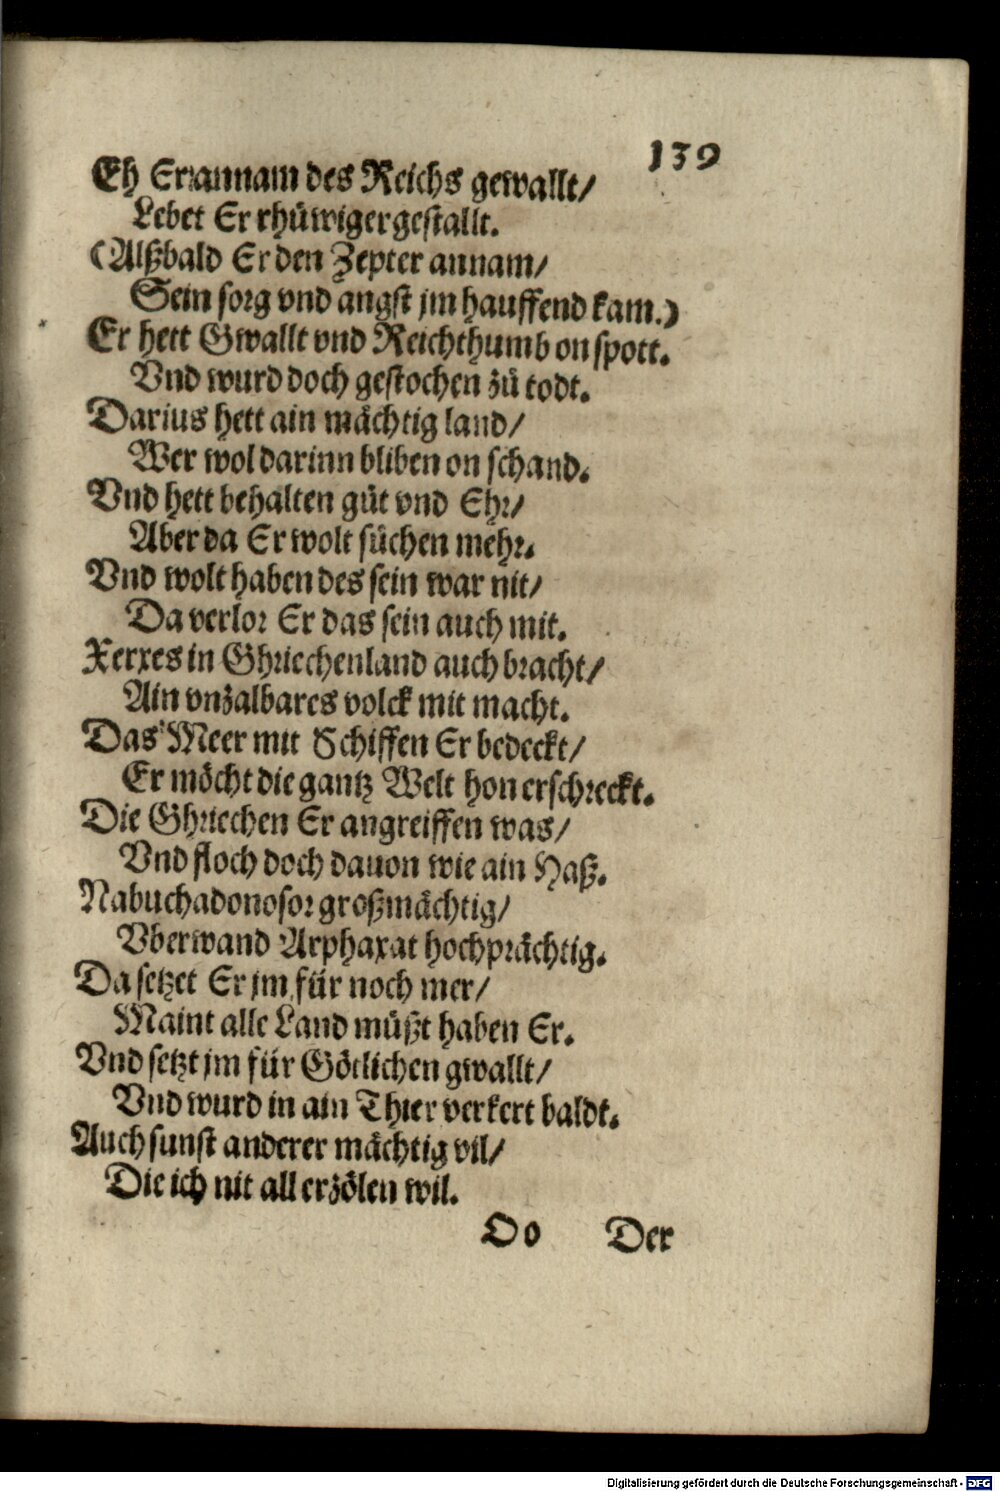 139
Eh Er annam des Reichs gewallt/
Lebet Er rhüwiger gestallt.
(Alßbald Er den Zepter annam/
Sein sorg vnd angst jm hauffend kam.)
Er hett Gwallt vnd Reichthumb on spott.
Vnd wurd doch gestochen zů todt.
Darius hett ain mächtig land/
Wer wol darinn bliben on schand.
Vnd hett behalten gůt vnd Ehr/
Aber da Er wolt sůchen mehr.
Vnd wolt haben des sein war nit/
Da verlor Er das sein auch mit.
Xerxes in Ghriechenland auch bracht/
Ain vnzalbares volck mit macht.
Das Meer mit Schiffen Er bedeckt/
Er möcht die gantz Welt hon erschreckt.
Die Ghriechen Er angreiffen was/
Vnd floch doch dauon wie ain Haß.
Nabuchadonosor großmächtig/
Vberwand Arphaxat hochprächtig.
Da setzet Er jm für noch mer/
Maint alle Land müßt haben Er.
Vnd setzt jm für Götlichen gwallt/
Vnd wurd in ain Thier verkert baldt.
Auch sunst anderer mächtig vil/
Die ich nit all erzölen wil.
Oo Der
Digitalisierung gefördert durch die Deutsche Forschungsgemeinschaft - DFG